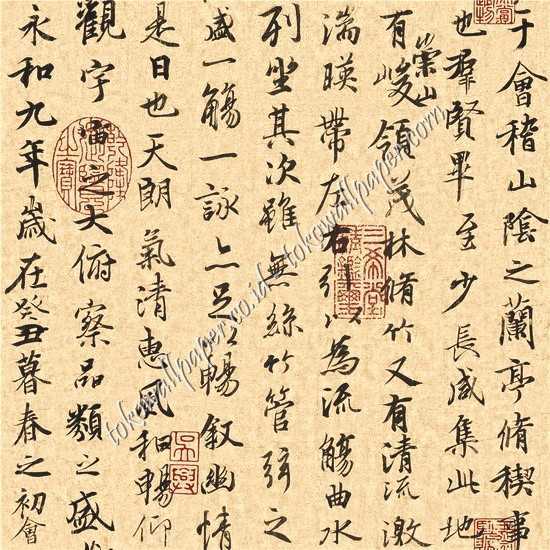 于會稽山陰之蘭亭脩稧事
也羣賢畢至少長咸集此地
有崇山峻領茂林脩竹又有清流激
湍暎帶左右引以為流觴曲水
列坐其次雖無絲竹管弦之
盛一觴一詠亦足以暢敘幽情
是日也天朗氣清惠風和暢仰
觀宇宙之大俯察品類之盛
永和九年歲在癸丑暮春之初會
三希堂
tokowallpaper.co.id - tokowallpaper.com